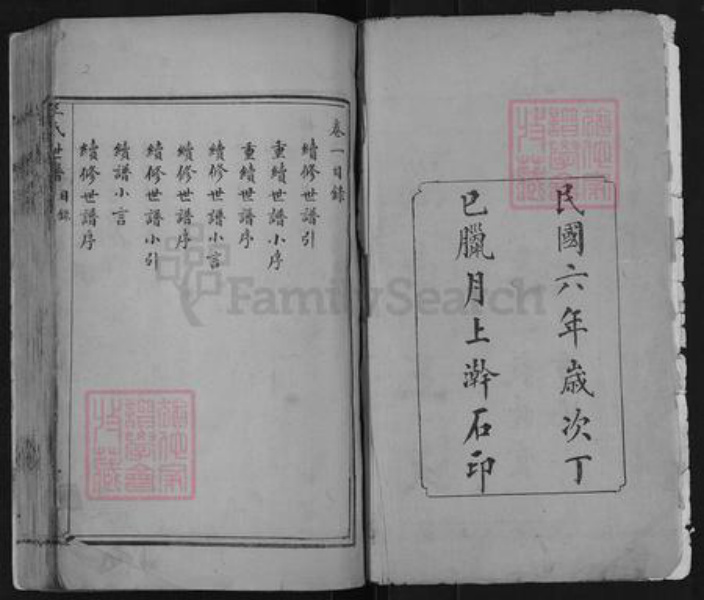 民國六年歲次丁
巳臘月上澣石印
卷一目錄
續修世譜引
重續世譜小序
重續世譜序
續修世譜小言
續修世譜序
續修世譜小引
續譜小言
續修世譜序
氏世譜 目錄
FamilySearch